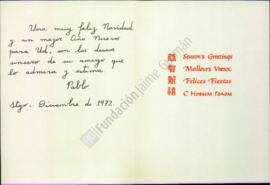 Una muy feliz Navidad
y un mejor Año Nuevo
para Ud., son los deseos
sinceros de su amigo que
lo admira y estima.
Pablo
Stgo. Diciembre de 1972
恭賀新禧
Season's Greetings
Meilleurs Vœux
Felices Fiestas
С Новым Годом
Fundación Jaime Guzmán